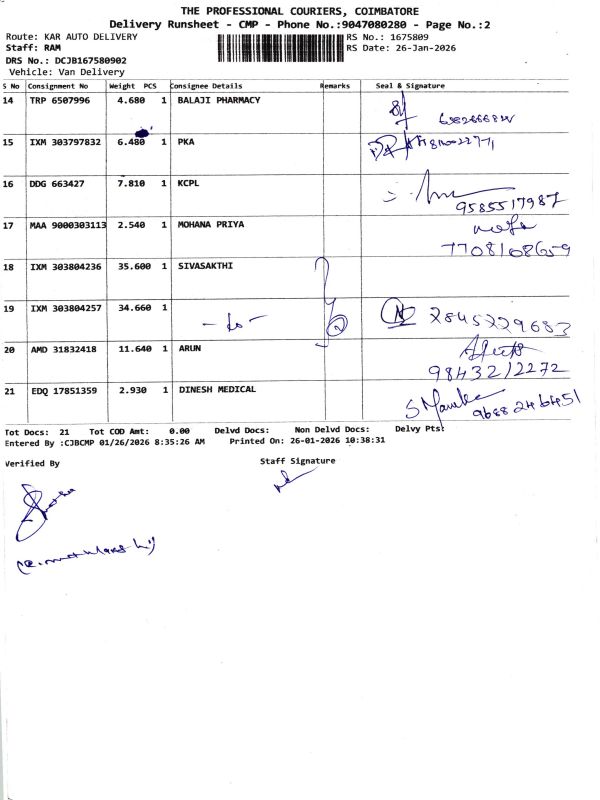 THE PROFESSIONAL COURIERS, COIMBATORE
Delivery Runsheet - CMP - Phone No.:9047080280 - Page No.:2
Route: KAR AUTO DELIVERY RS No.: 1675809
Staff: RAM RS Date: 26-Jan-2026
DRS No.: DCJB167580902
Vehicle: Van Delivery
S No Consignment No Weight PCS Consignee Details Remarks Seal & Signature
14 TRP 6507996 4.680 1 BALAJI PHARMACY
15 IXM 303797832 6.480 1 PKA
16 DDG 663427 7.810 1 KCPL
9585517987
17 MAA 9000303113 2.540 1 MOHANA PRIYA
7708108659
18 IXM 303804236 35.600 1 SIVASAKTHI
19 IXM 303804257 34.660 1 - do - 2845229683
20 AMD 31832418 11.640 1 ARUN
9843212272
21 EDQ 17851359 2.930 1 DINESH MEDICAL
9688246451
Tot Docs: 21 Tot COD Amt: 0.00 Delvd Docs: Non Delvd Docs: Delvy Pts:
Entered By :CJBCMP 01/26/2026 8:35:26 AM Printed On: 26-01-2026 10:38:31
Verified By Staff Signature